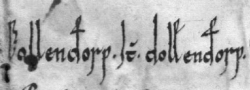 Bollendorp. it̄. dollendorp.